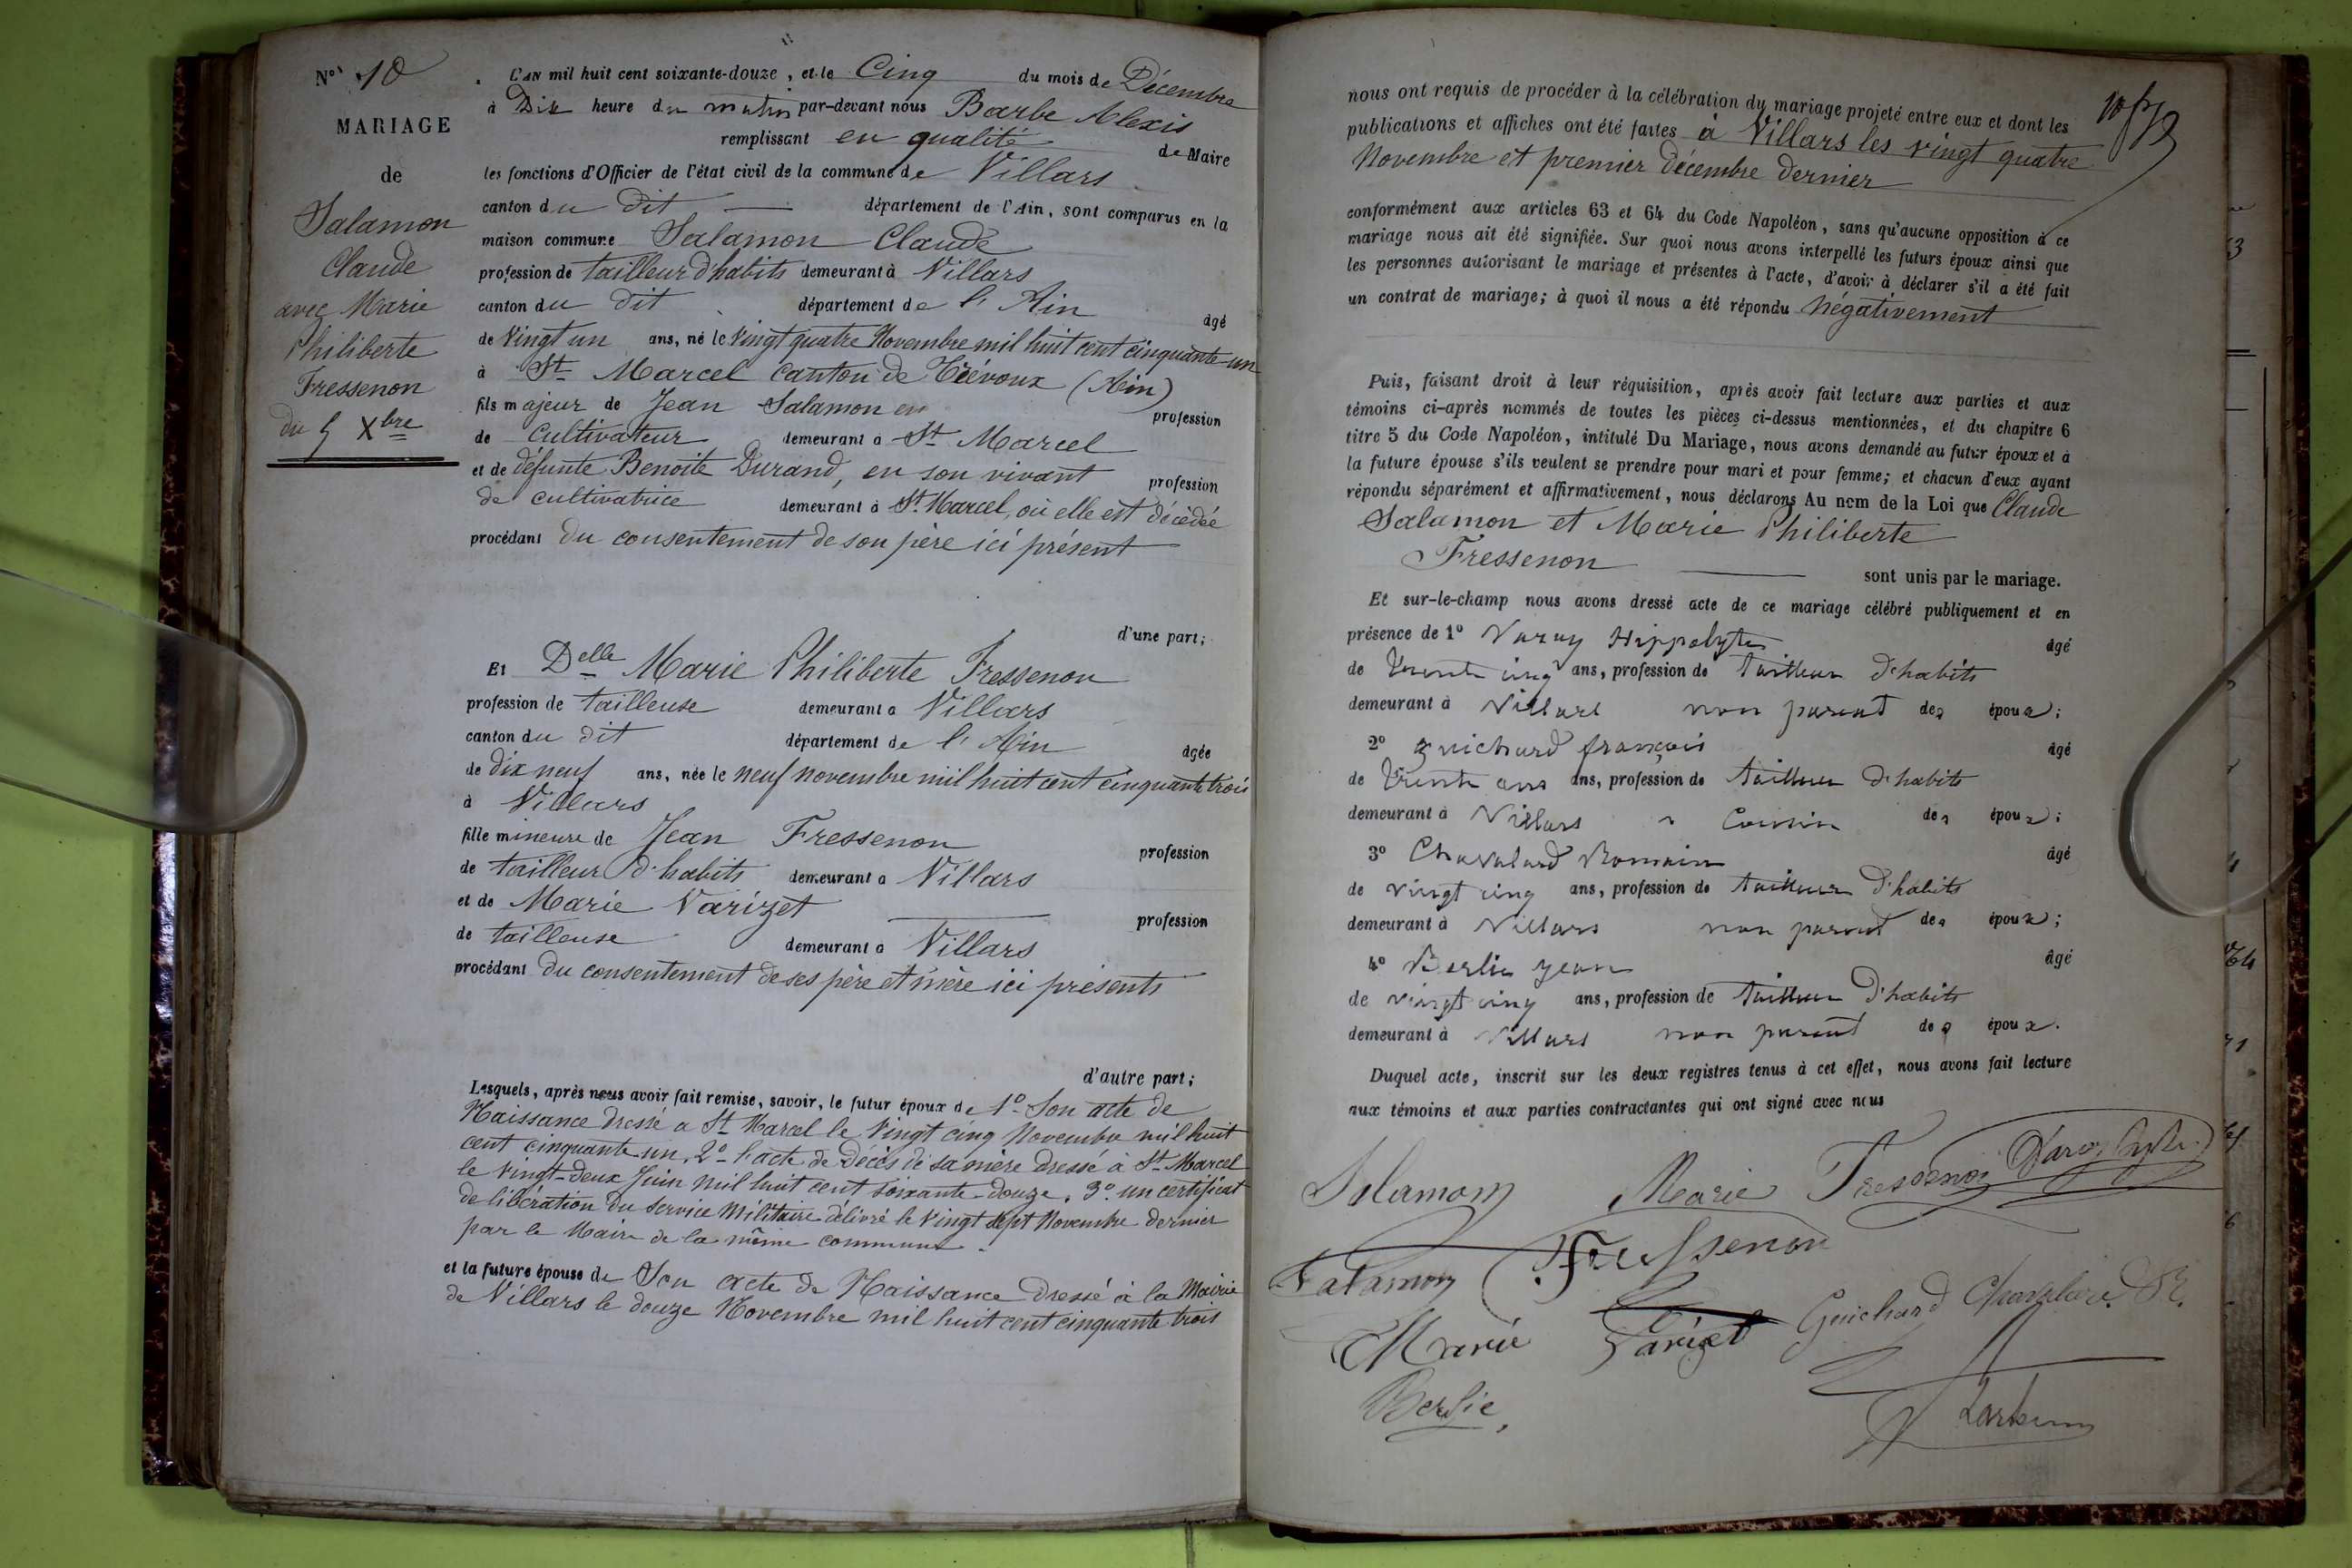 N° 10
MARIAGE
de
Salamon
Claude
avec Marie
Philiberte
Fressenon
du 5 Xbre
L'AN mil huit cent soixante-douze, et le Cinq du mois de Décembre
à Dix heure du matin par-devant nous Barbe Alexis
remplissant en qualité de Maire
les fonctions d'Officier de l'état civil de la commune de Villars
canton du dit département de l'Ain, sont comparus en la
maison commune Salamon Claude
profession de tailleur d'habits demeurant à Villars
canton du dit département de l'Ain âgé
de vingt un ans, né le vingt quatre Novembre mil huit cent cinquante-un
à St Marcel canton de Trévoux (Ain)
fils majeur de Jean Salamon en profession
de cultivateur demeurant à St Marcel
et de défunte Benoite Durand, en son vivant profession
de cultivatrice demeurant à St Marcel, où elle est décédée
procédant du consentement de son père ici présent
d'une part;
Et Delle Marie Philiberte Fressenon
profession de tailleuse demeurant à Villars
canton du dit département de l'Ain âgée
de dix neuf ans, née le neuf novembre mil huit cent cinquante trois
à Villars
fille mineure de Jean Fressenon profession
de tailleur d'habits demeurant à Villars
et de Marie Varizet profession
de tailleuse demeurant à Villars
procédant du consentement de ses père et mère ici présents
d'autre part;
Lesquels, après nous avoir fait remise, savoir, le futur époux de 1° Son acte de
Naissance dressé à St Marcel le vingt cinq Novembre mil huit
cent cinquante un, 2° l'acte de décès de sa mère dressé à St Marcel
le vingt-deux Juin mil huit cent soixante-douze, 3° un certificat
de libération du service Militaire délivré le vingt sept Novembre dernier
par le Maire de la même commune.
et la future épouse de Son acte de Naissance dressé à la Mairie
de Villars le douze Novembre mil huit cent cinquante trois
nous ont requis de procéder à la célébration du mariage projeté entre eux et dont les
publications et affiches ont été faites à Villars les vingt quatre
Novembre et premier Décembre dernier
conformément aux articles 63 et 64 du Code Napoléon, sans qu'aucune opposition à ce
mariage nous ait été signifiée. Sur quoi nous avons interpellé les futurs époux ainsi que
les personnes autorisant le mariage et présentes à l'acte, d'avoir à déclarer s'il a été fait
un contrat de mariage; à quoi il nous a été répondu négativement
Puis, faisant droit à leur réquisition, après avoir fait lecture aux parties et aux
témoins ci-après nommés de toutes les pièces ci-dessus mentionnées, et du chapitre 6
titre 5 du Code Napoléon, intitulé Du Mariage, nous avons demandé au futur époux et à
la future épouse s'ils veulent se prendre pour mari et pour femme; et chacun d'eux ayant
répondu séparément et affirmativement, nous déclarons Au nom de la Loi que Claude
Salamon et Marie Philiberte
Fressenon sont unis par le mariage.
Et sur-le-champ nous avons dressé acte de ce mariage célébré publiquement et en
présence de 1° Hippolyte âgé
de trente cinq ans, profession de tailleur d'habits
demeurant à Villars non parent des époux;
2° guichard françois âgé
de trente ans ans, profession de tailleur d'habits
demeurant à Villars cousin des époux;
3° Chavalard Romain âgé
de vingt cinq ans, profession de tailleur d'habits
demeurant à Villars non parent des époux;
4° Berlie Jean âgé
de vingt cinq ans, profession de tailleur d'habits
demeurant à Villars non parent des époux.
Duquel acte, inscrit sur les deux registres tenus à cet effet, nous avons fait lecture
aux témoins et aux parties contractantes qui ont signé avec nous
Salamon Marie Fressenon
Salamon Fressenon
Guichard
Marie Varizet
Berlie